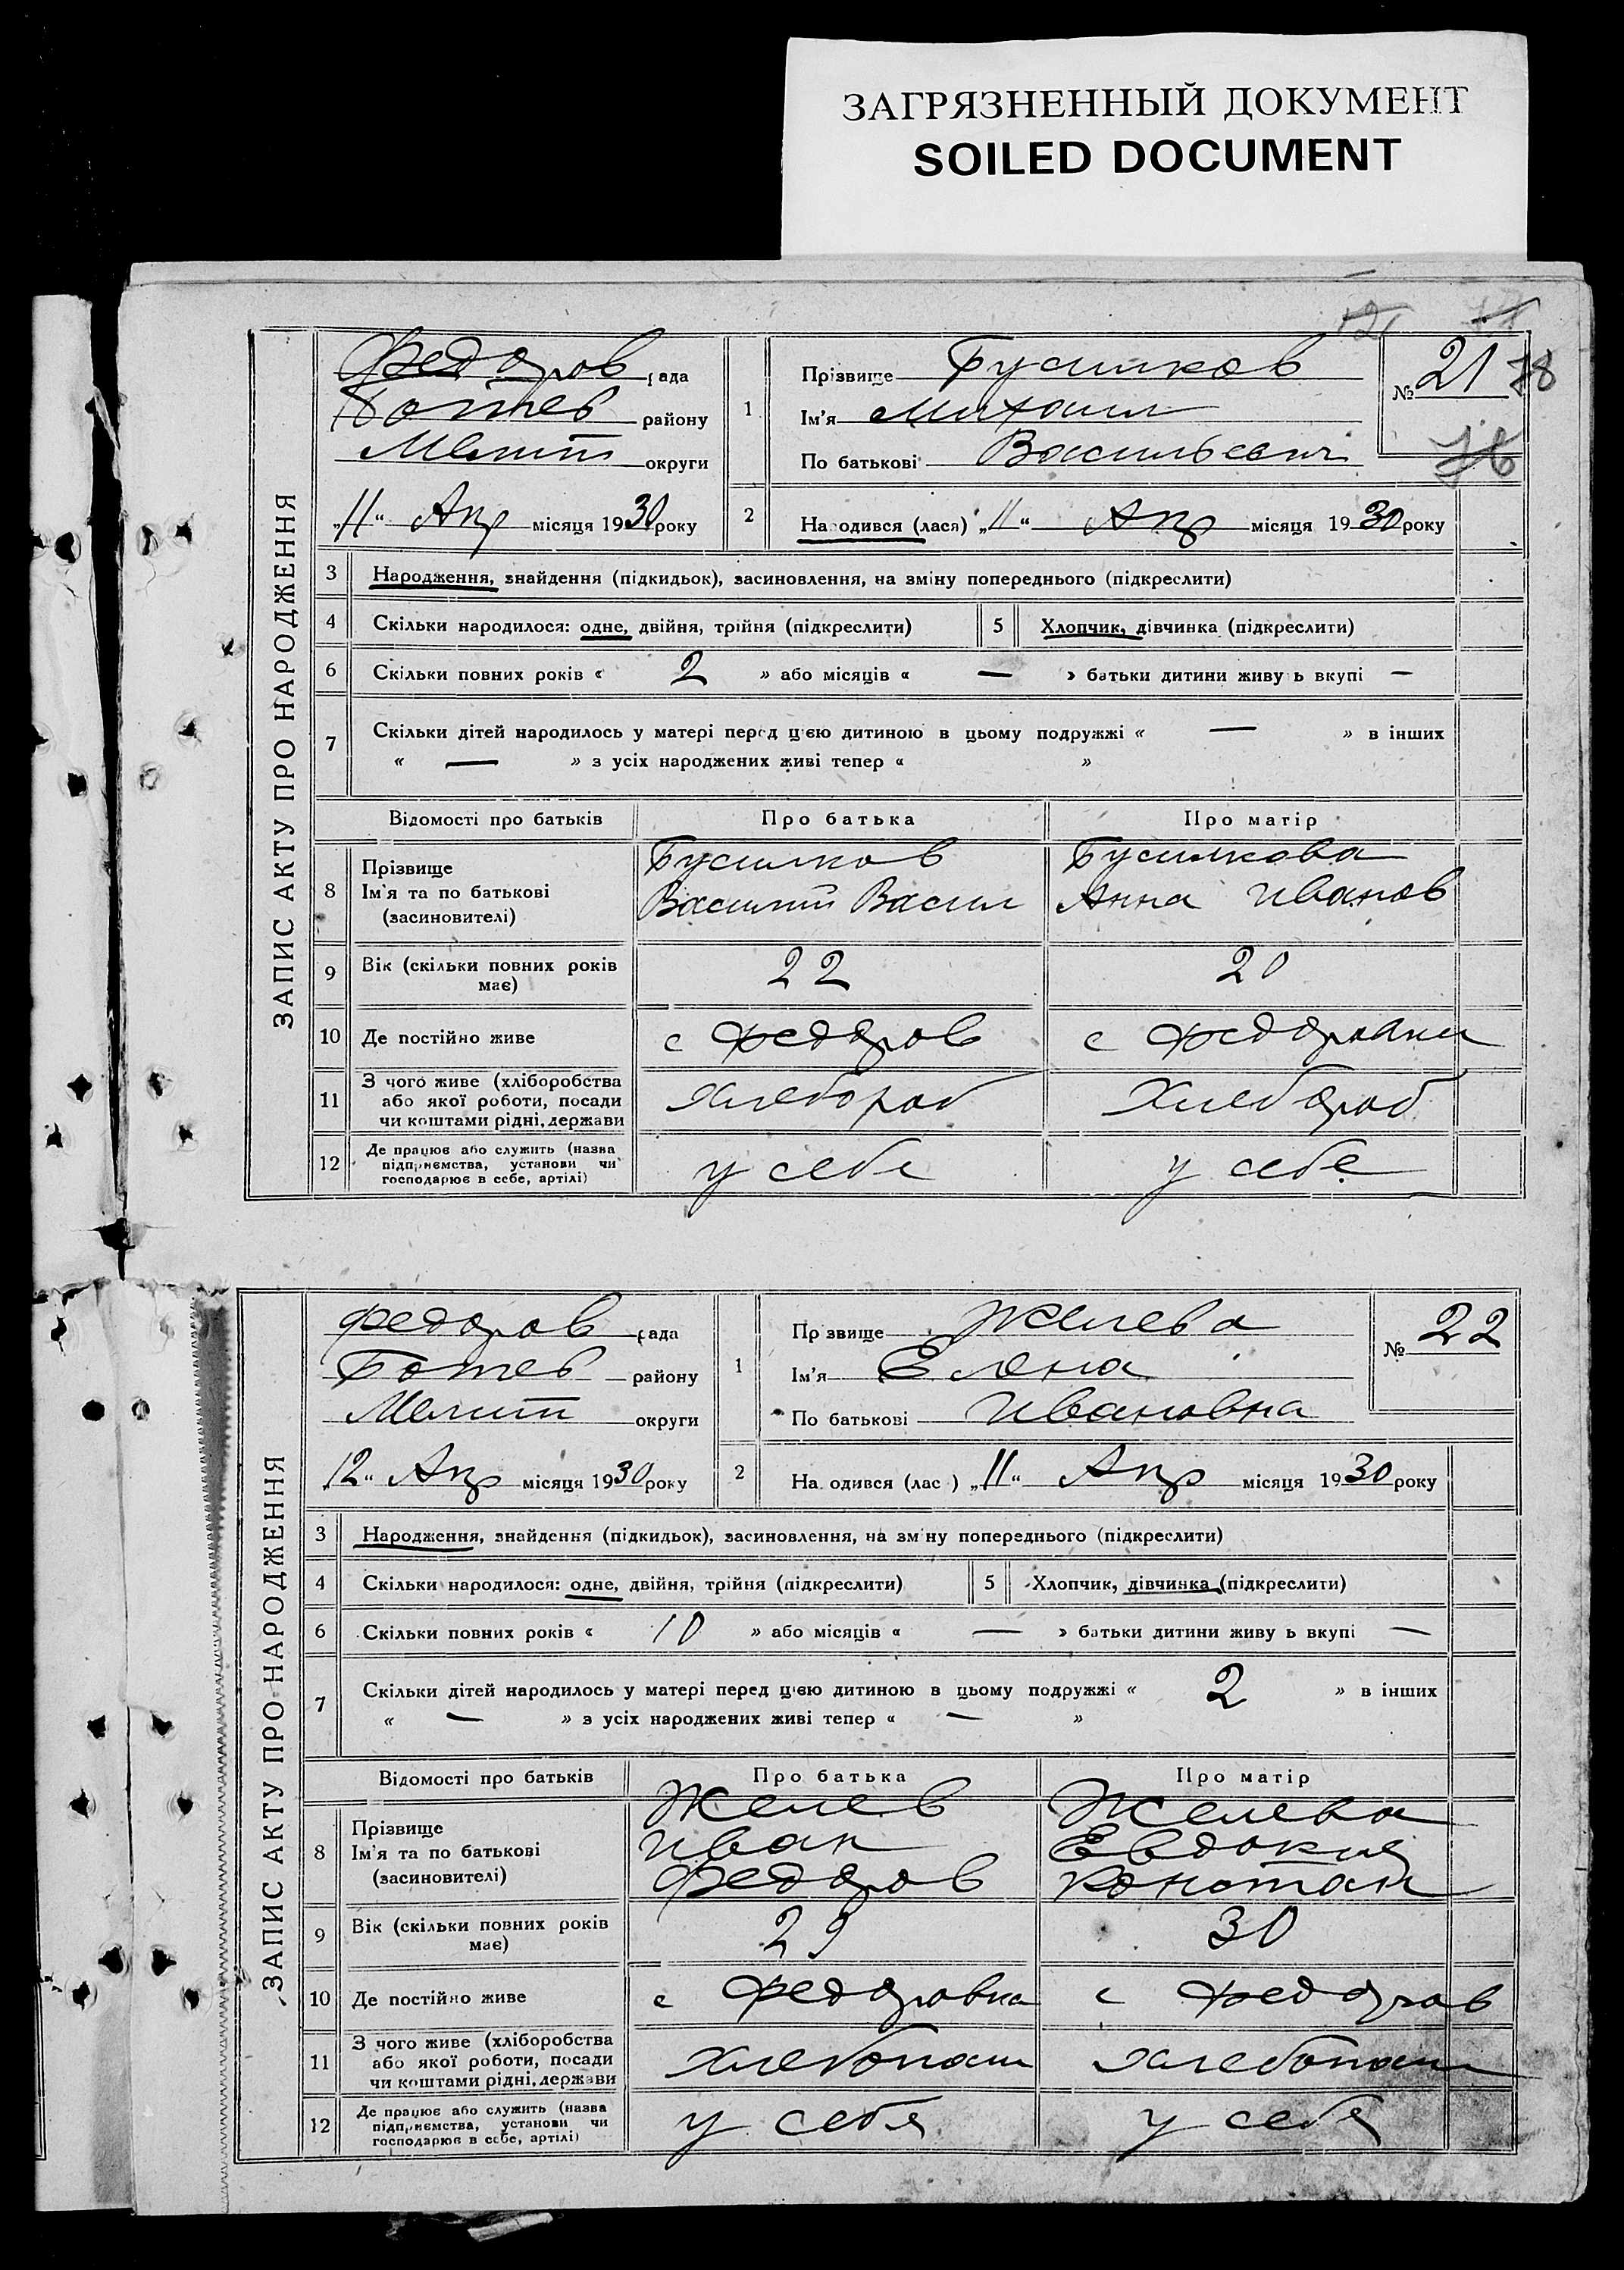 ЗАГРЯЗНЕННЫЙ ДОКУМЕНТ
SOILED DOCUMENT
ЗАПИС АКТУ ПРО НАРОДЖЕННЯ
Федоров рада
Ботев району
Мелит округи
„11“ Апр місяця 1930 року
1
Прізвище Бусилков
Ім'я Михаил
По батькові Васильевич
№ 21 78
76
2 Народився (лася) „11“ Апр місяця 1930 року
3 Народження, знайдення (підкидьок), засиновлення, на зміну попереднього (підкреслити)
4 Скільки народилося: одне, двійня, трійня (підкреслити) 5 Хлопчик, дівчинка (підкреслити)
6 Скільки повних років « 2 » або місяців « — » батьки дитини живу ь вкупі —
7 Скільки дітей народилось у матері перед цією дитиною в цьому подружжі « — » в інших
« — » з усіх народжених живі тепер « »
Відомості про батьків Про батька Про матір
8 Прізвище
Ім'я та по батькові
(засиновителі)
Бусилков
Василий Васил
Бусилкова
Анна Иванов
9 Вік (скільки повних років має) 22 20
10 Де постійно живе с Федоров с Федоровки
11 З чого живе (хліборобства
або якої роботи, посади
чи коштами рідні, держави
Хлебороб Хлебороб
12 Де працює або служить (назва
підприємства, установи чи
господарює в себе, артілі)
у себе у себе
ЗАПИС АКТУ ПРО НАРОДЖЕННЯ
Федоров рада
Ботев району
Мелит округи
„12“ Апр місяця 1930 року
1
Пр звище Желева
Ім'я Елена
По батькові Ивановна
№ 22
2 На одився (лас ) „11“ Апр місяця 1930 року
3 Народження, знайдення (підкидьок), засиновлення, на зм ну попереднього (підкреслити)
4 Скільки народилося: одне, двійня, трійня (підкреслити) 5 Хлопчик, дівчинка (підкреслити)
6 Скільки повних років « 10 » або місяців « — » батьки дитини живу ь вкупі —
7 Скільки дітей народилось у матері перед цією дитиною в цьому подружжі « 2 » в інших
« — » з усіх народжених живі тепер « — »
Відомості про батьків Про батька Про матір
8 Прізвище
Ім'я та по батькові
(засиновителі)
Желев
Иван
Федоров
Желева
Евдокия
Констан
9 Вік (скільки повних років має) 29 30
10 Де постійно живе с Федоровка с Федоров
11 З чого живе (хліборобства
або якої роботи, посади
чи коштами рідні, держави
Хлебопаш Хлебопаш
12 Де працює або служить (назва
підприємства, установи чи
господарює в себе, артілі)
у себя у себя